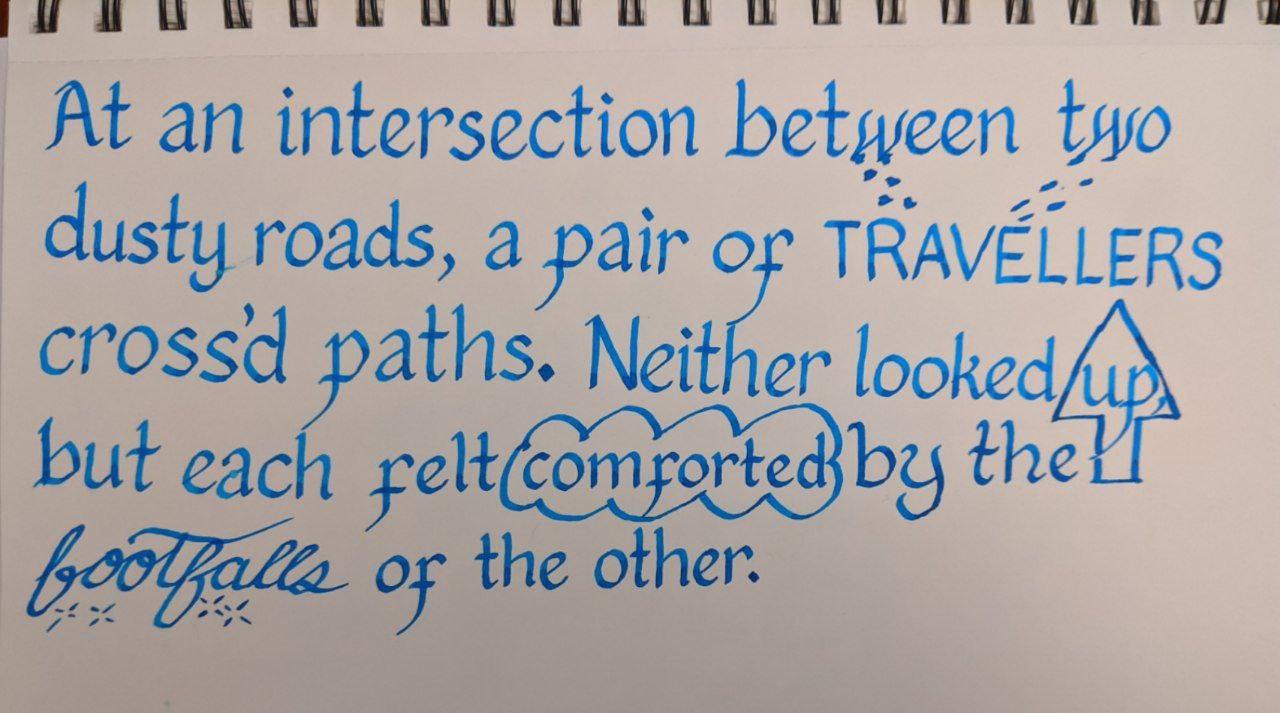 At an intersection between two
dusty roads, a pair of TRAVELLERS
cross'd paths. Neither looked up,
but each felt comforted by the
footfalls of the other.